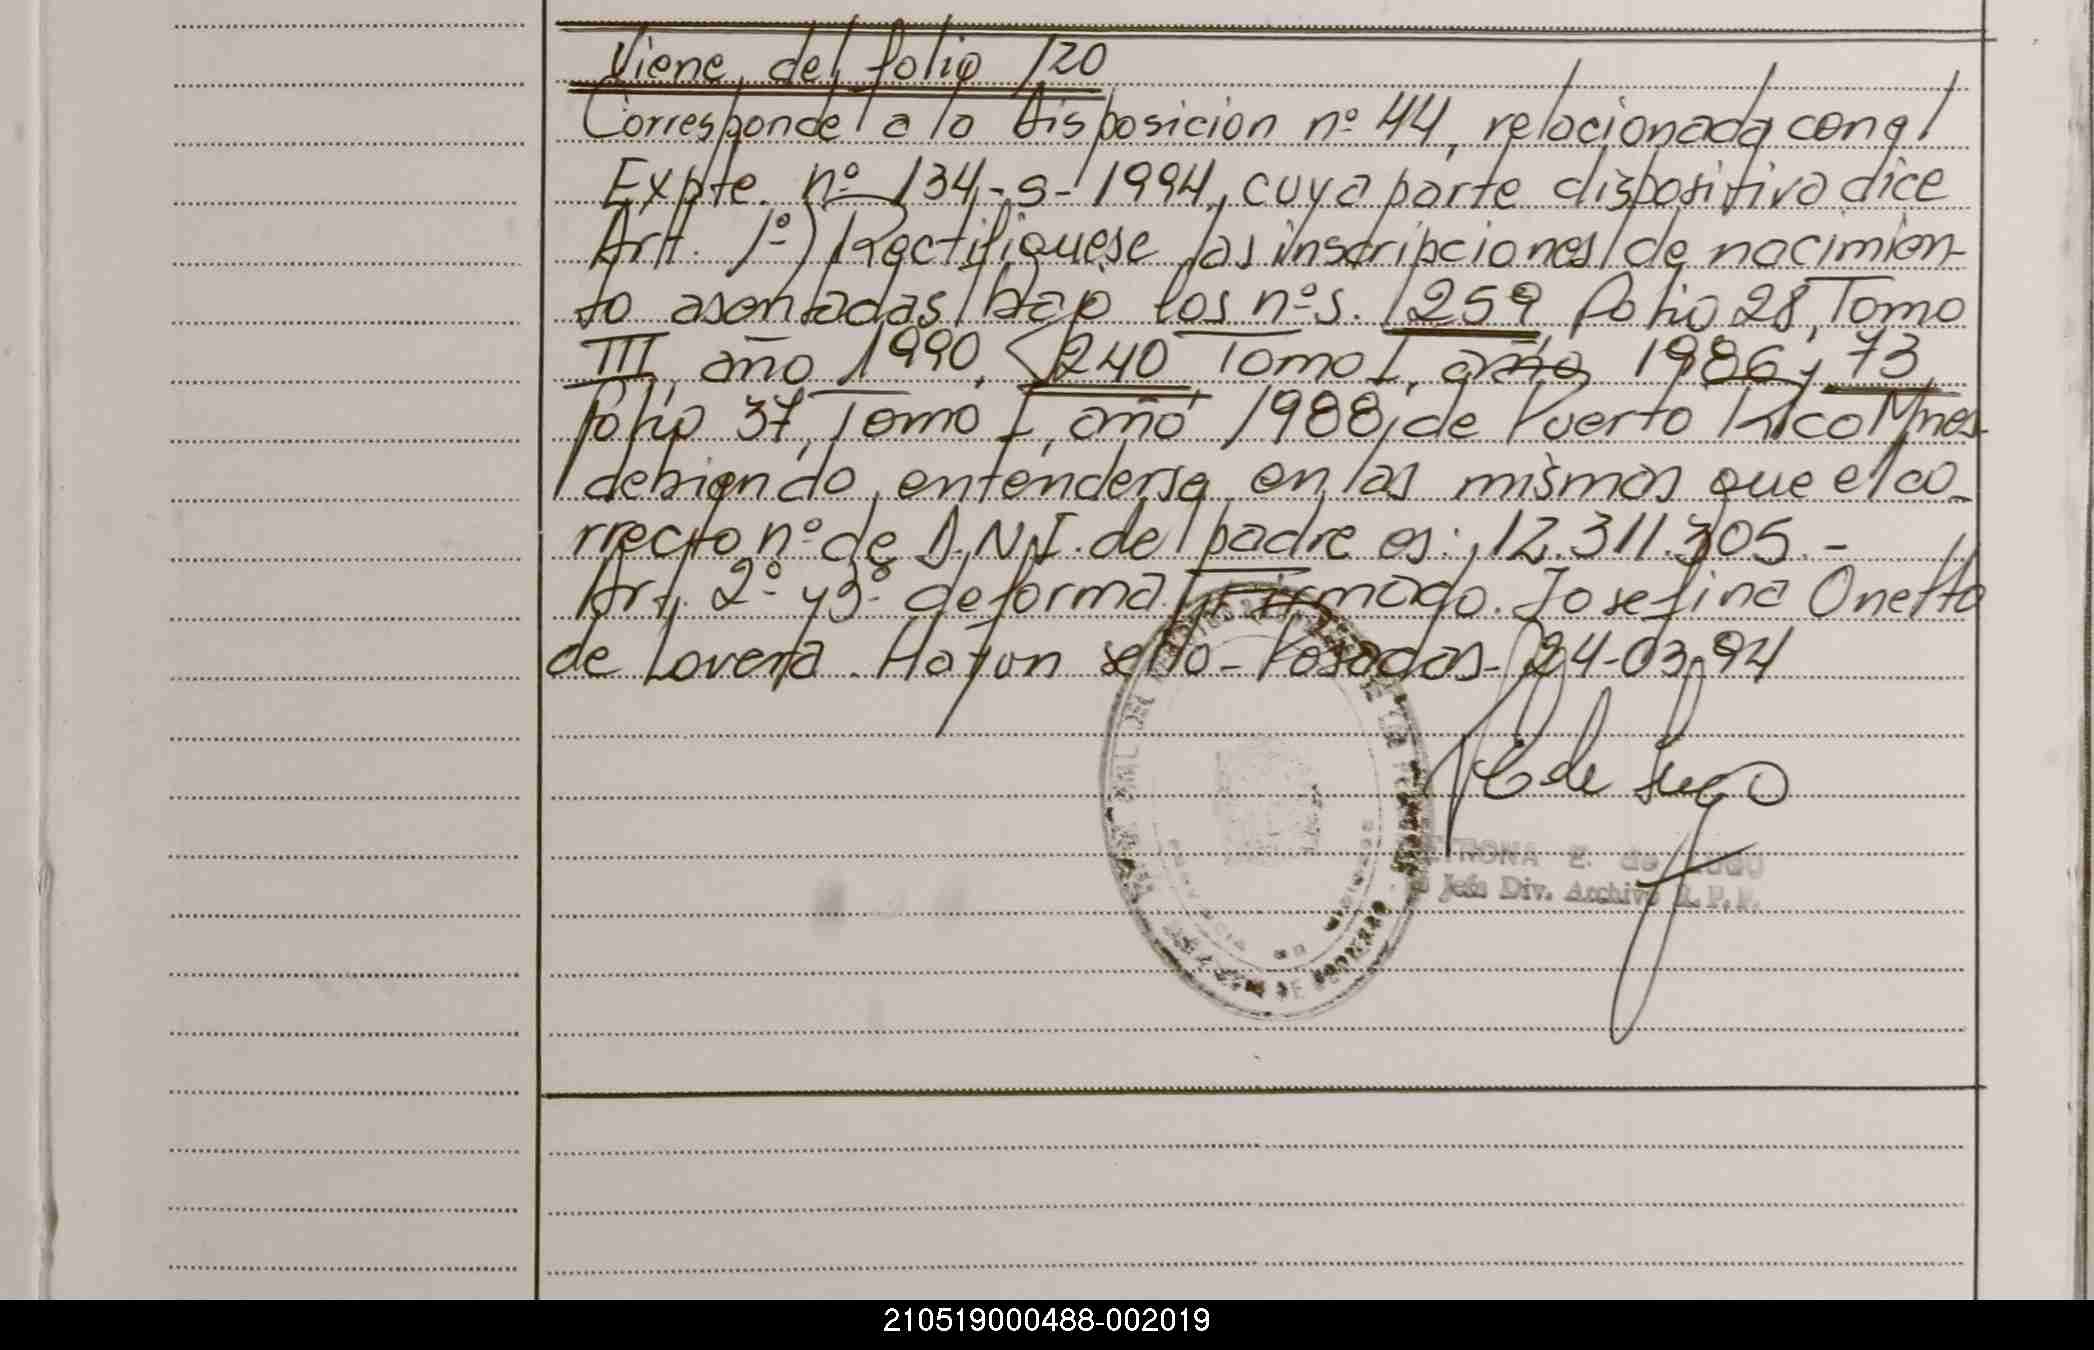 Viene del folio 120
Corresponde a la Disposicion nº 44, relacionada con el
Expte. nº 134-S-1994, cuya parte dispositiva dice
Art. 1º) Rectifiquese las inscripciones de nacimien-
to asentadas bajo los nºs. 1259 folio 28, Tomo
III, año 1990, 240 Tomo I, año 1986 y 73
folio 37, Tomo I, año 1988, de Puerto Rico Mnes
debiendo entenderse en las mismas que el co-
rrecto nº de D.N.I. del padre es: 12.311.305.-
Art. 2º y 3º de forma. Firmado. Josefina Onetto
de Lovera. Hay un sello - Posadas - 24-03-94
de Lugo
E. de LUGO
Jefa Div. Archivo R.P.P.
PROVINCIA DE MISIONES
210519000488-002019